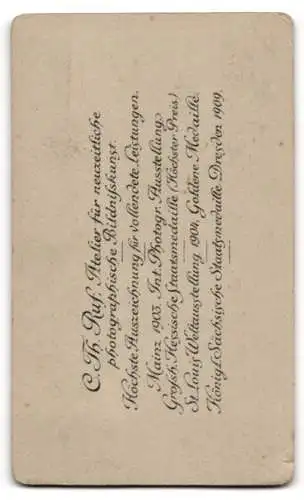 C. Th. Ruf, Atelier für neuzeitliche
photographische Bildnißkunst.
Höchste Auszeichnung für vollendete Leistungen.
Mainz 1903. Int. Photogr. Ausstellung
Großh. Hessische Staatsmedaille (Höchster Preis)
St. Louis Weltausstellung 1904, Goldene Medaille.
Königl. Sächsische Staatsmedaille Dresden 1909.